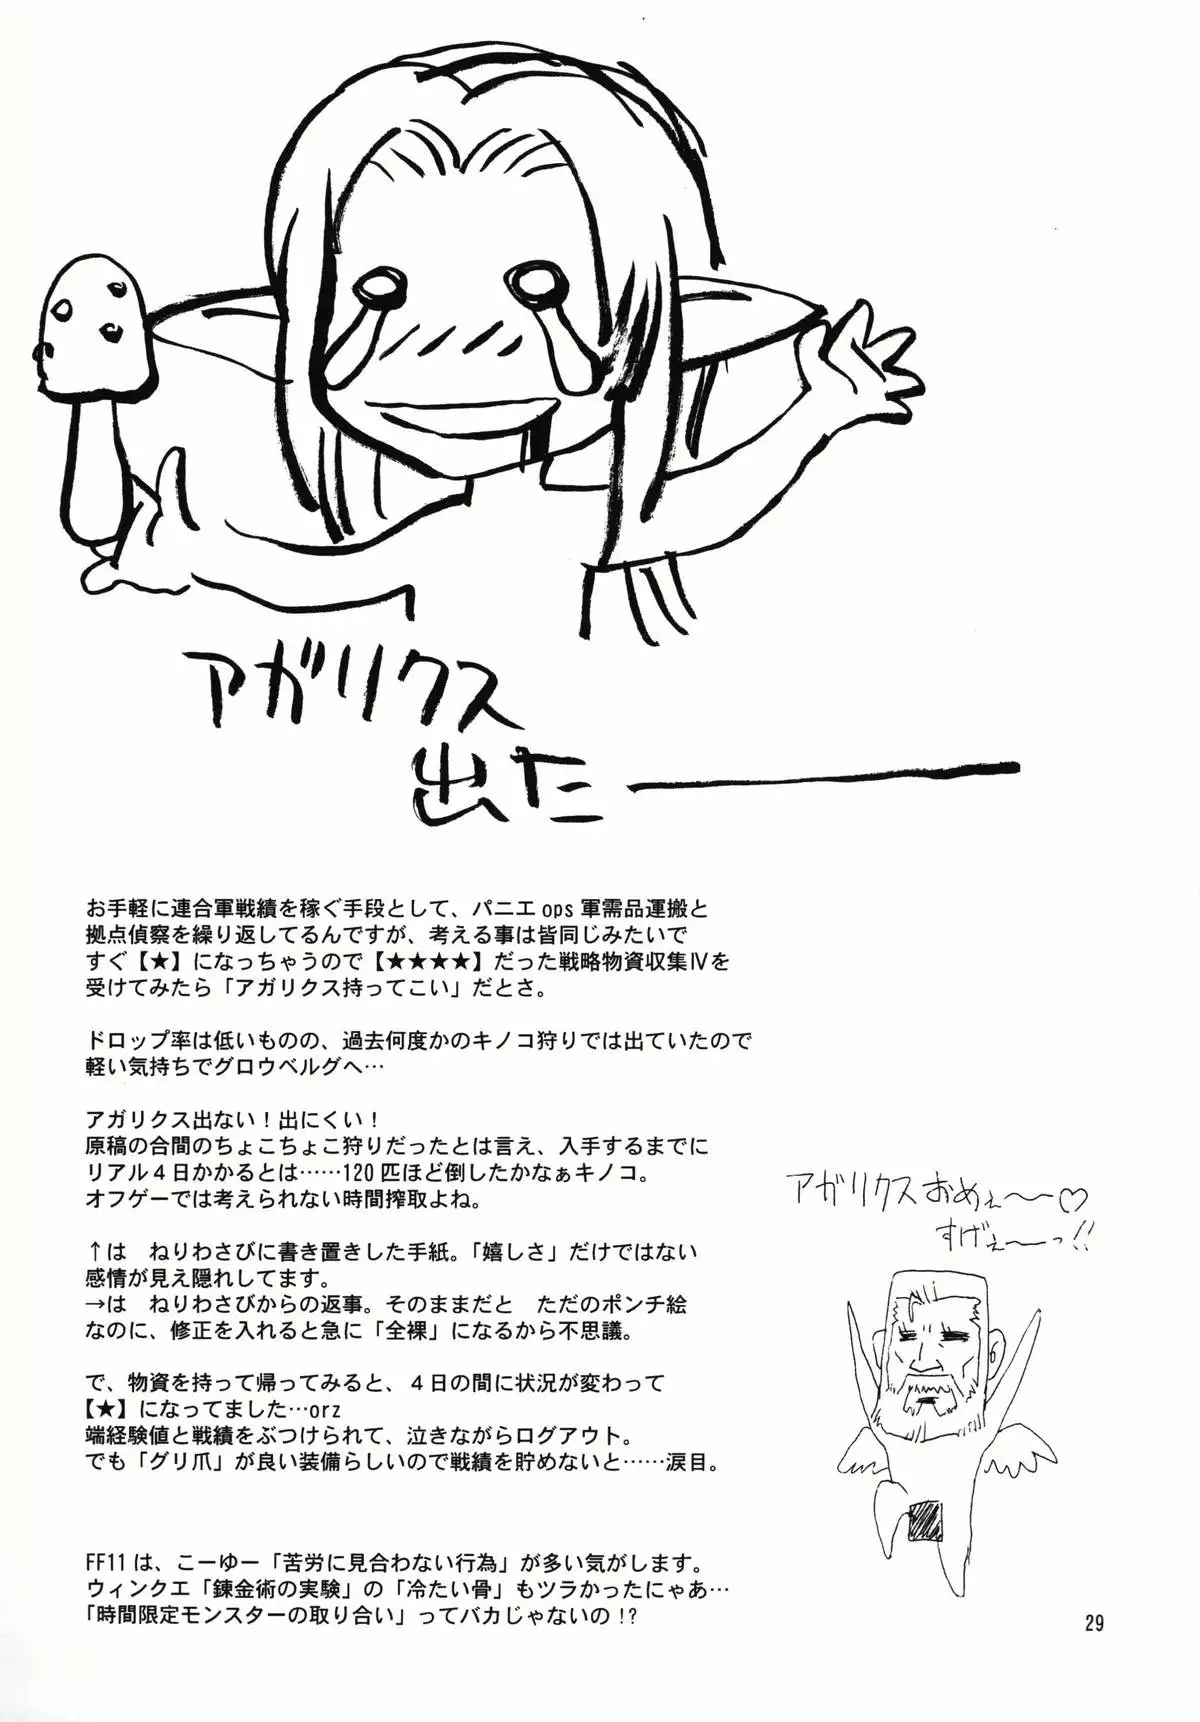 アガリクス
出たー
お手軽に連合軍戦績を稼ぐ手段として、パニエops軍需品運搬と
拠点偵察を繰り返してるんですが、考える事は皆同じみたいで
すぐ【★】になっちゃうので【★★★★】だった戦略物資収集Ⅳを
受けてみたら「アガリクス持ってこい」だとさ。
ドロップ率は低いものの、過去何度かのキノコ狩りでは出ていたので
軽い気持ちでグロウベルグへ…
アガリクス出ない！出にくい！
原稿の合間のちょこちょこ狩りだったとは言え、入手するまでに
リアル４日かかるとは……120匹ほど倒したかなぁキノコ。
オフゲーでは考えられない時間搾取よね。
↑は　ねりわさびに書き置きした手紙。「嬉しさ」だけではない
感情が見え隠れしてます。
→は　ねりわさびからの返事。そのままだと　ただのポンチ絵
なのに、修正を入れると急に「全裸」になるから不思議。
で、物資を持って帰ってみると、４日の間に状況が変わって
【★】になってました…orz
端経験値と戦績をぶつけられて、泣きながらログアウト。
でも「グリ爪」が良い装備らしいので戦績を貯めないと……涙目。
アガリクスおめぇ〜〜♡
すげぇ〜〜っ!!
FF11は、こーゆー「苦労に見合わない行為」が多い気がします。
ウィンクエ「錬金術の実験」の「冷たい骨」もツラかったにゃあ…
「時間限定モンスターの取り合い」ってバカじゃないの!?
29